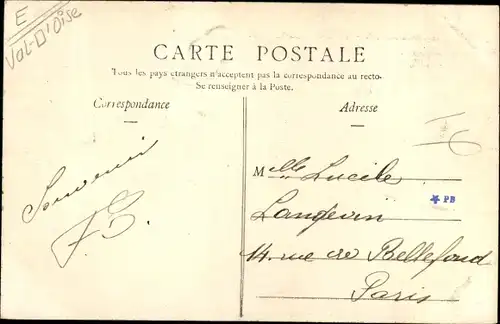 E
Val-D'Oise
CARTE POSTALE
Tous les pays étrangers n'acceptent pas la correspondance au recto.
Se renseigner à la Poste.
Correspondance
Adresse
Souvenir
Melle Lucile
PB
Langevin
14. rue de Bellefond
Paris